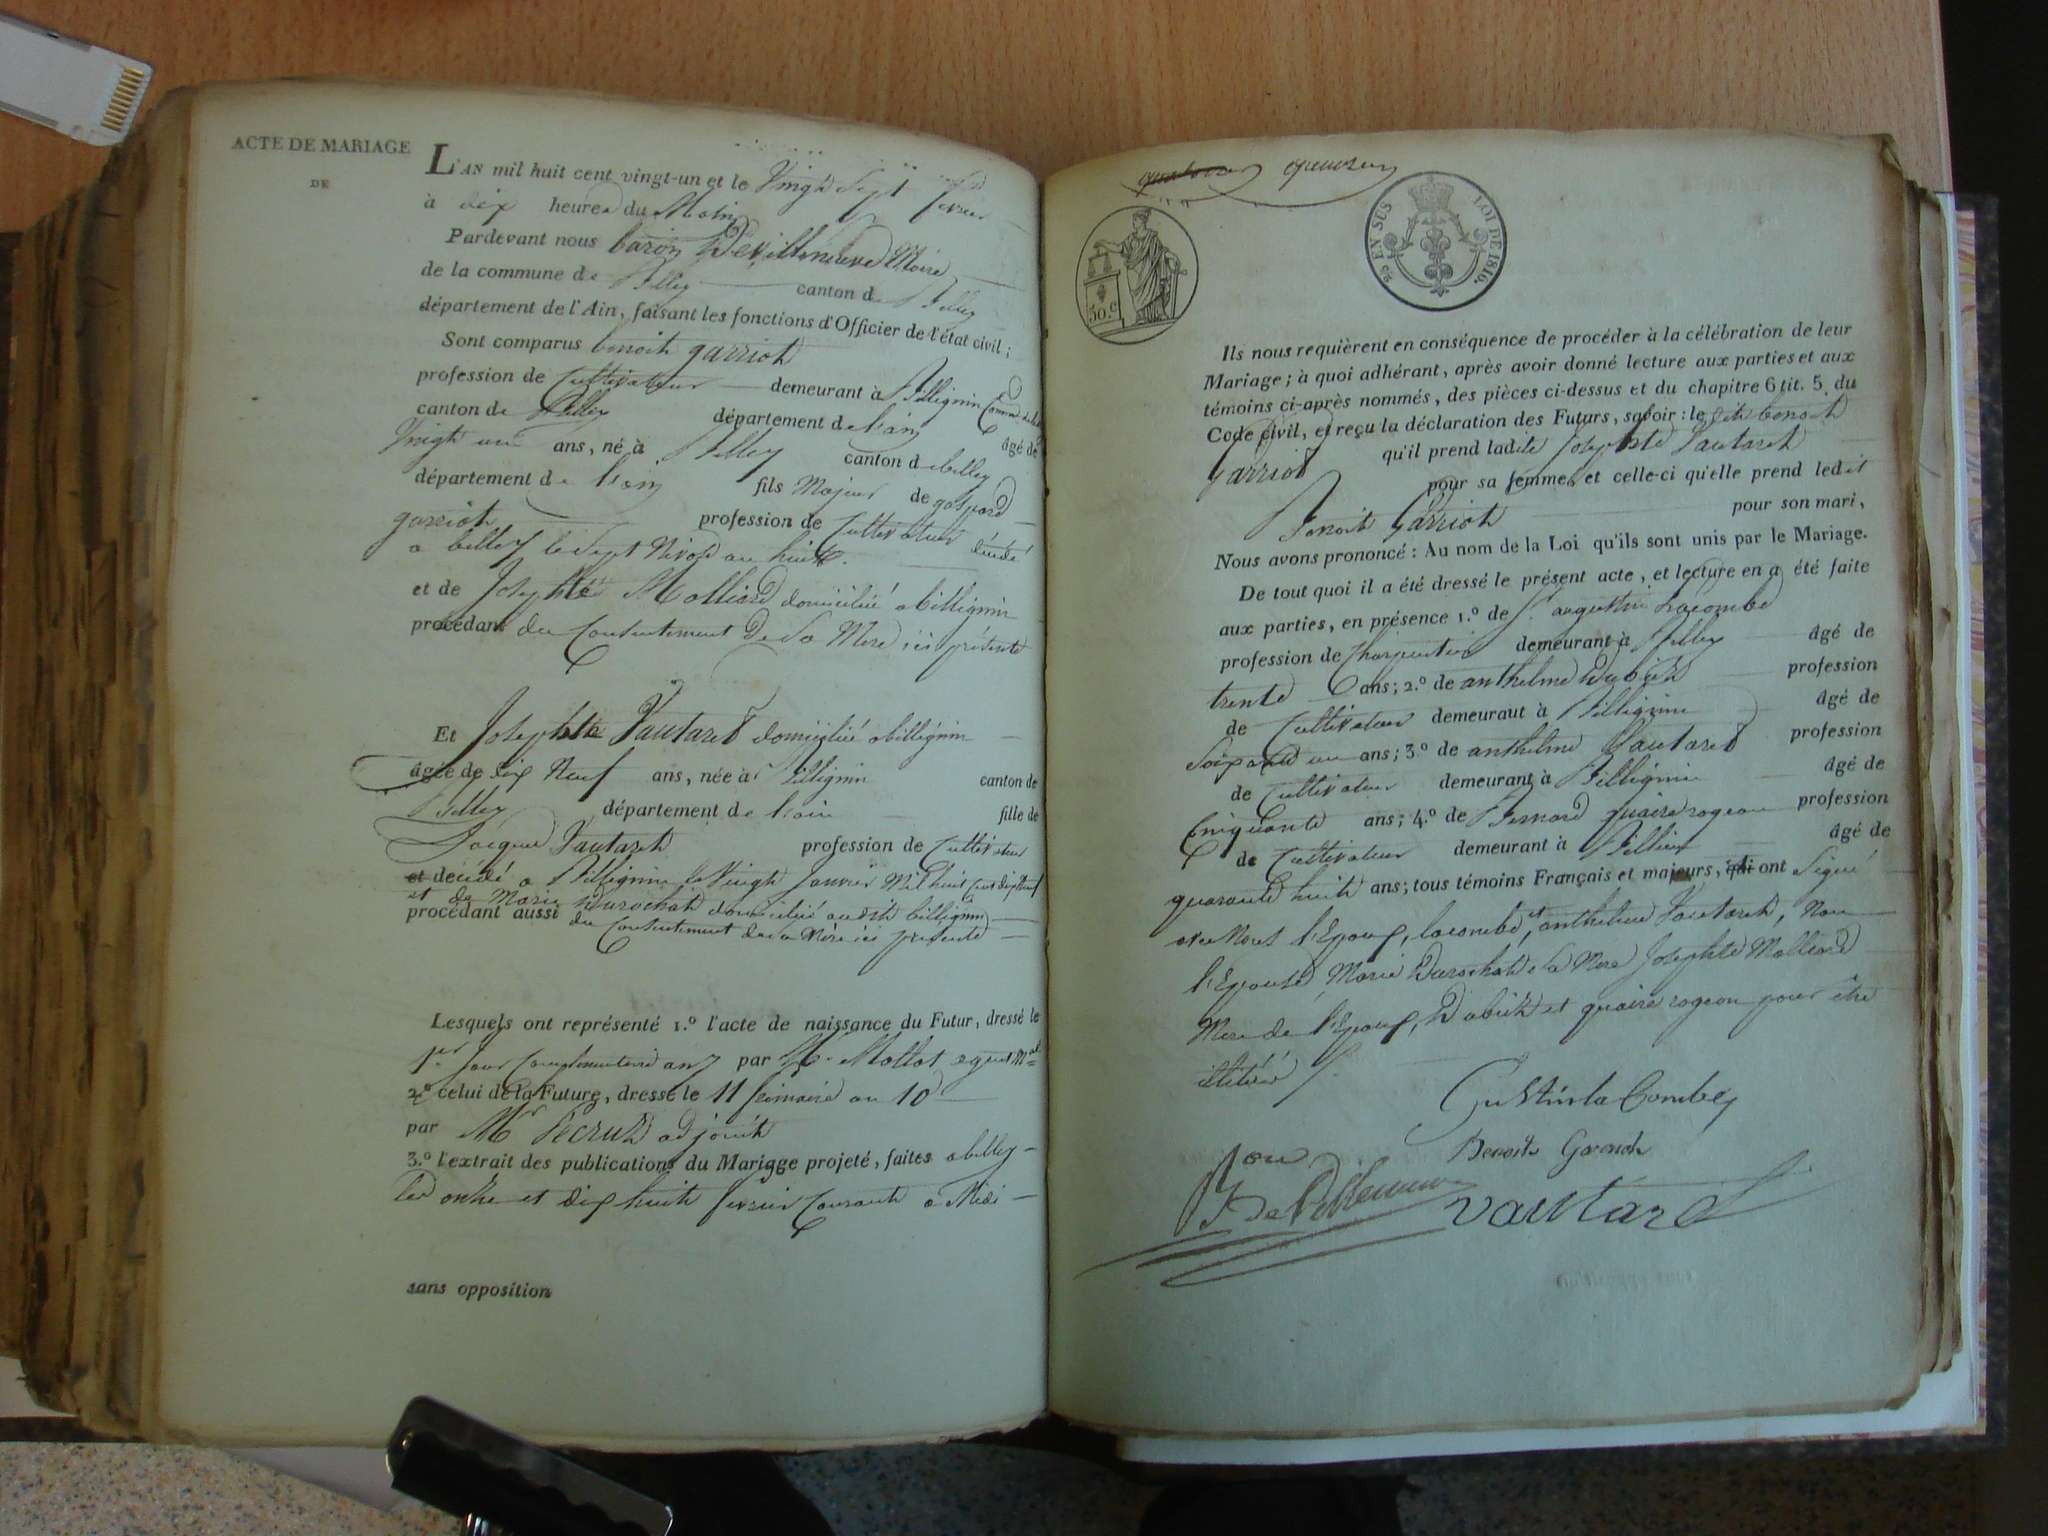 ACTE DE MARIAGE
DE
L'AN mil huit cent vingt-un et le Vingt Sept fevrier
à dix heures du Matin
Pardevant nous baron Devilleneuve Maire
de la commune de Belley canton de Belley
département de l'Ain, faisant les fonctions d'Officier de l'état civil;
Sont comparus benoit garriot
profession de Cultivateur demeurant à Billignin
canton de Belley département de l'ain âgé de
Vingt un ans, né à Belley canton de belley
département de l'ain fils Majeur de gaspard
garriot profession de Cultivateur décédé
a belley le Sept Nivose an huit.
et de Josephte Molliard domiciliée a billignin
procédant du Consentement De Sa Mere ici présente
Et Josephte Vautaret domiciliée a billignin
âgée de dix Neuf ans, née à Billignin canton de
Belley département de l'ain fille de
Jacques Vautaret profession de Cultivateur
et décédé a Billignin le Vingt Janvier Mil huit cent dix Neuf
et de Marie Durochat domiciliée audit billignin
procédant aussi du Consentement de sa Mère ici présente
Lesquels ont représenté 1.º l'acte de naissance du Futur, dressé le
1er Jour Complementaire an 7 par Mr Mollot agent Mal
2.º celui de la Future, dressé le 11 frimaire an 10
par Mr Pecrud adjoint
3.º l'extrait des publications du Mariage projeté, faites a belley
Les onze et dix huit fevrier Courant a Midi
sans opposition
quatorze quinze
30.c
2e EN SUS LOI DE 1816.
Ils nous requièrent en conséquence de procéder à la célébration de leur
Mariage; à quoi adhérant, après avoir donné lecture aux parties et aux
témoins ci-après nommés, des pièces ci-dessus et du chapitre 6 tit. 5 du
Code civil, et reçu la déclaration des Futurs, savoir: le dit benoit
Garriot qu'il prend ladite Josephte Vautaret
pour sa femme, et celle-ci qu'elle prend ledit
Benoit Garriot pour son mari,
Nous avons prononcé: Au nom de la Loi qu'ils sont unis par le Mariage.
De tout quoi il a été dressé le présent acte, et lecture en a été faite
aux parties, en présence 1.º de Sr augustin Lacombe
profession de Charpentier demeurant à Belley âgé de
trente ans; 2.º de anthelme Dubuit profession
de Cultivateur demeuraut à Billignin âgé de
Soixante un ans; 3.º de anthelme Vautaret profession
de Cultivateur demeurant à Billignin âgé de
Cinquante ans; 4.º de Bernard quaire rogeon profession
de Cultivateur demeurant à Billieu âgé de
quarante huit ans; tous témoins Français et majeurs, qui ont Signé
avec Nous l'Epoux, lacombe, et anthelme Vautaret, Non
l'Epouse, Marie Durochat sa Mere Josephte Molliard
Mere de l'Epoux, Dubuit et quaire rogeon pour être
illitérés
Gustin la Combe
Benoit Garriot
Bon
J De Villeneuve
vautaret